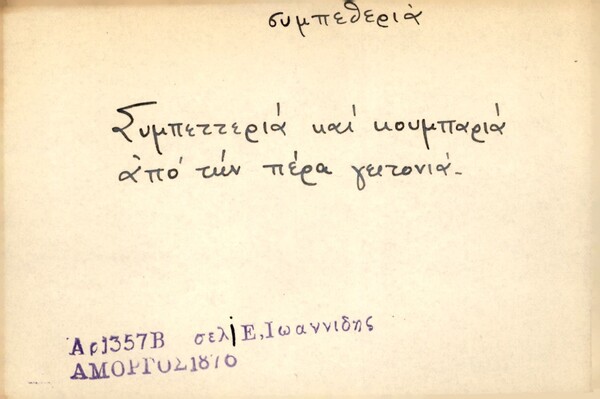 συμπεθεριά
Συμπεττεριά καί κουμπαριά
ἀπό τήν πέρα γειτονιά.
Αρ1357Β σελ Ε, Ιωαννιδης
ΑΜΟΡΓΟΣ1876